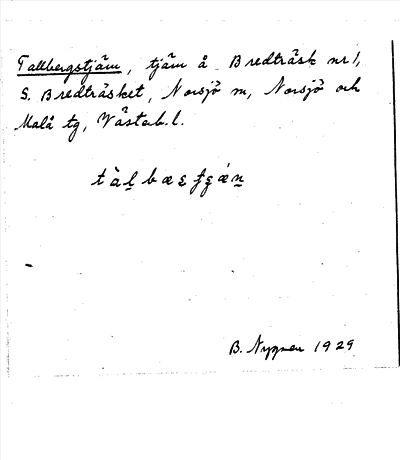 Tallbergstjärn, tjärn å Bredträsk nr 1,
S. Bredträsket, Norsjö sn, Norsjö och
Malå tg, Västerb. l.
B. Nygren 1929